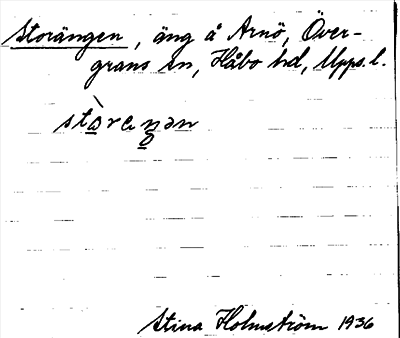 Storängen, äng å Arnö, Över-
grans sn, Håbo hd, Upps. l.
stòraŋən
Stina Holmström 1936